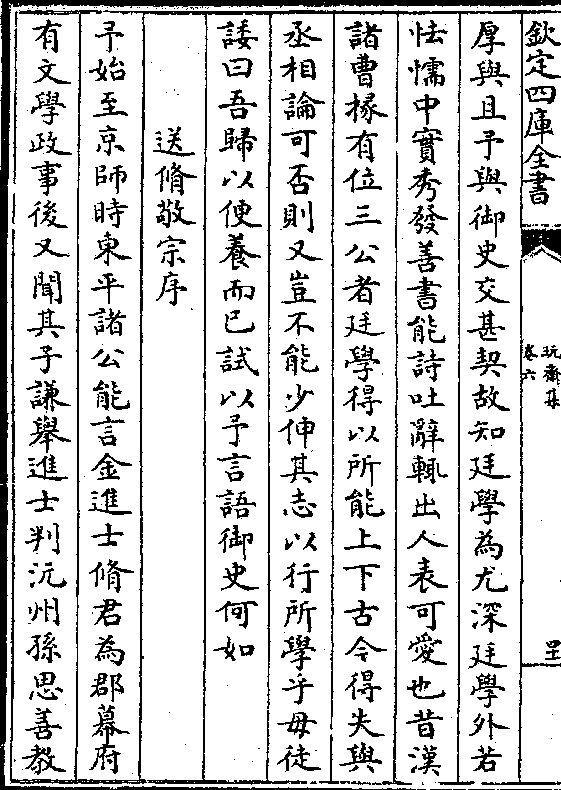 欽定四庫全書
玩齋集
卷六
厚與且予與御史交甚契故知廷學為尤深廷學外若
怯懦中實秀發善書能詩吐辭輒出人表可愛也昔漢
諸曹掾有位三公者廷學得以所能上下古今得失與
丞相論可否則又豈不能少伸其志以行所學乎毋徒
諉曰吾歸以便養而已試以予言語御史何如
送脩敬宗序
予始至京師時東平諸公能言金進士脩君為郡幕府
有文學政事後又聞其子謙舉進士判沅州孫思善教